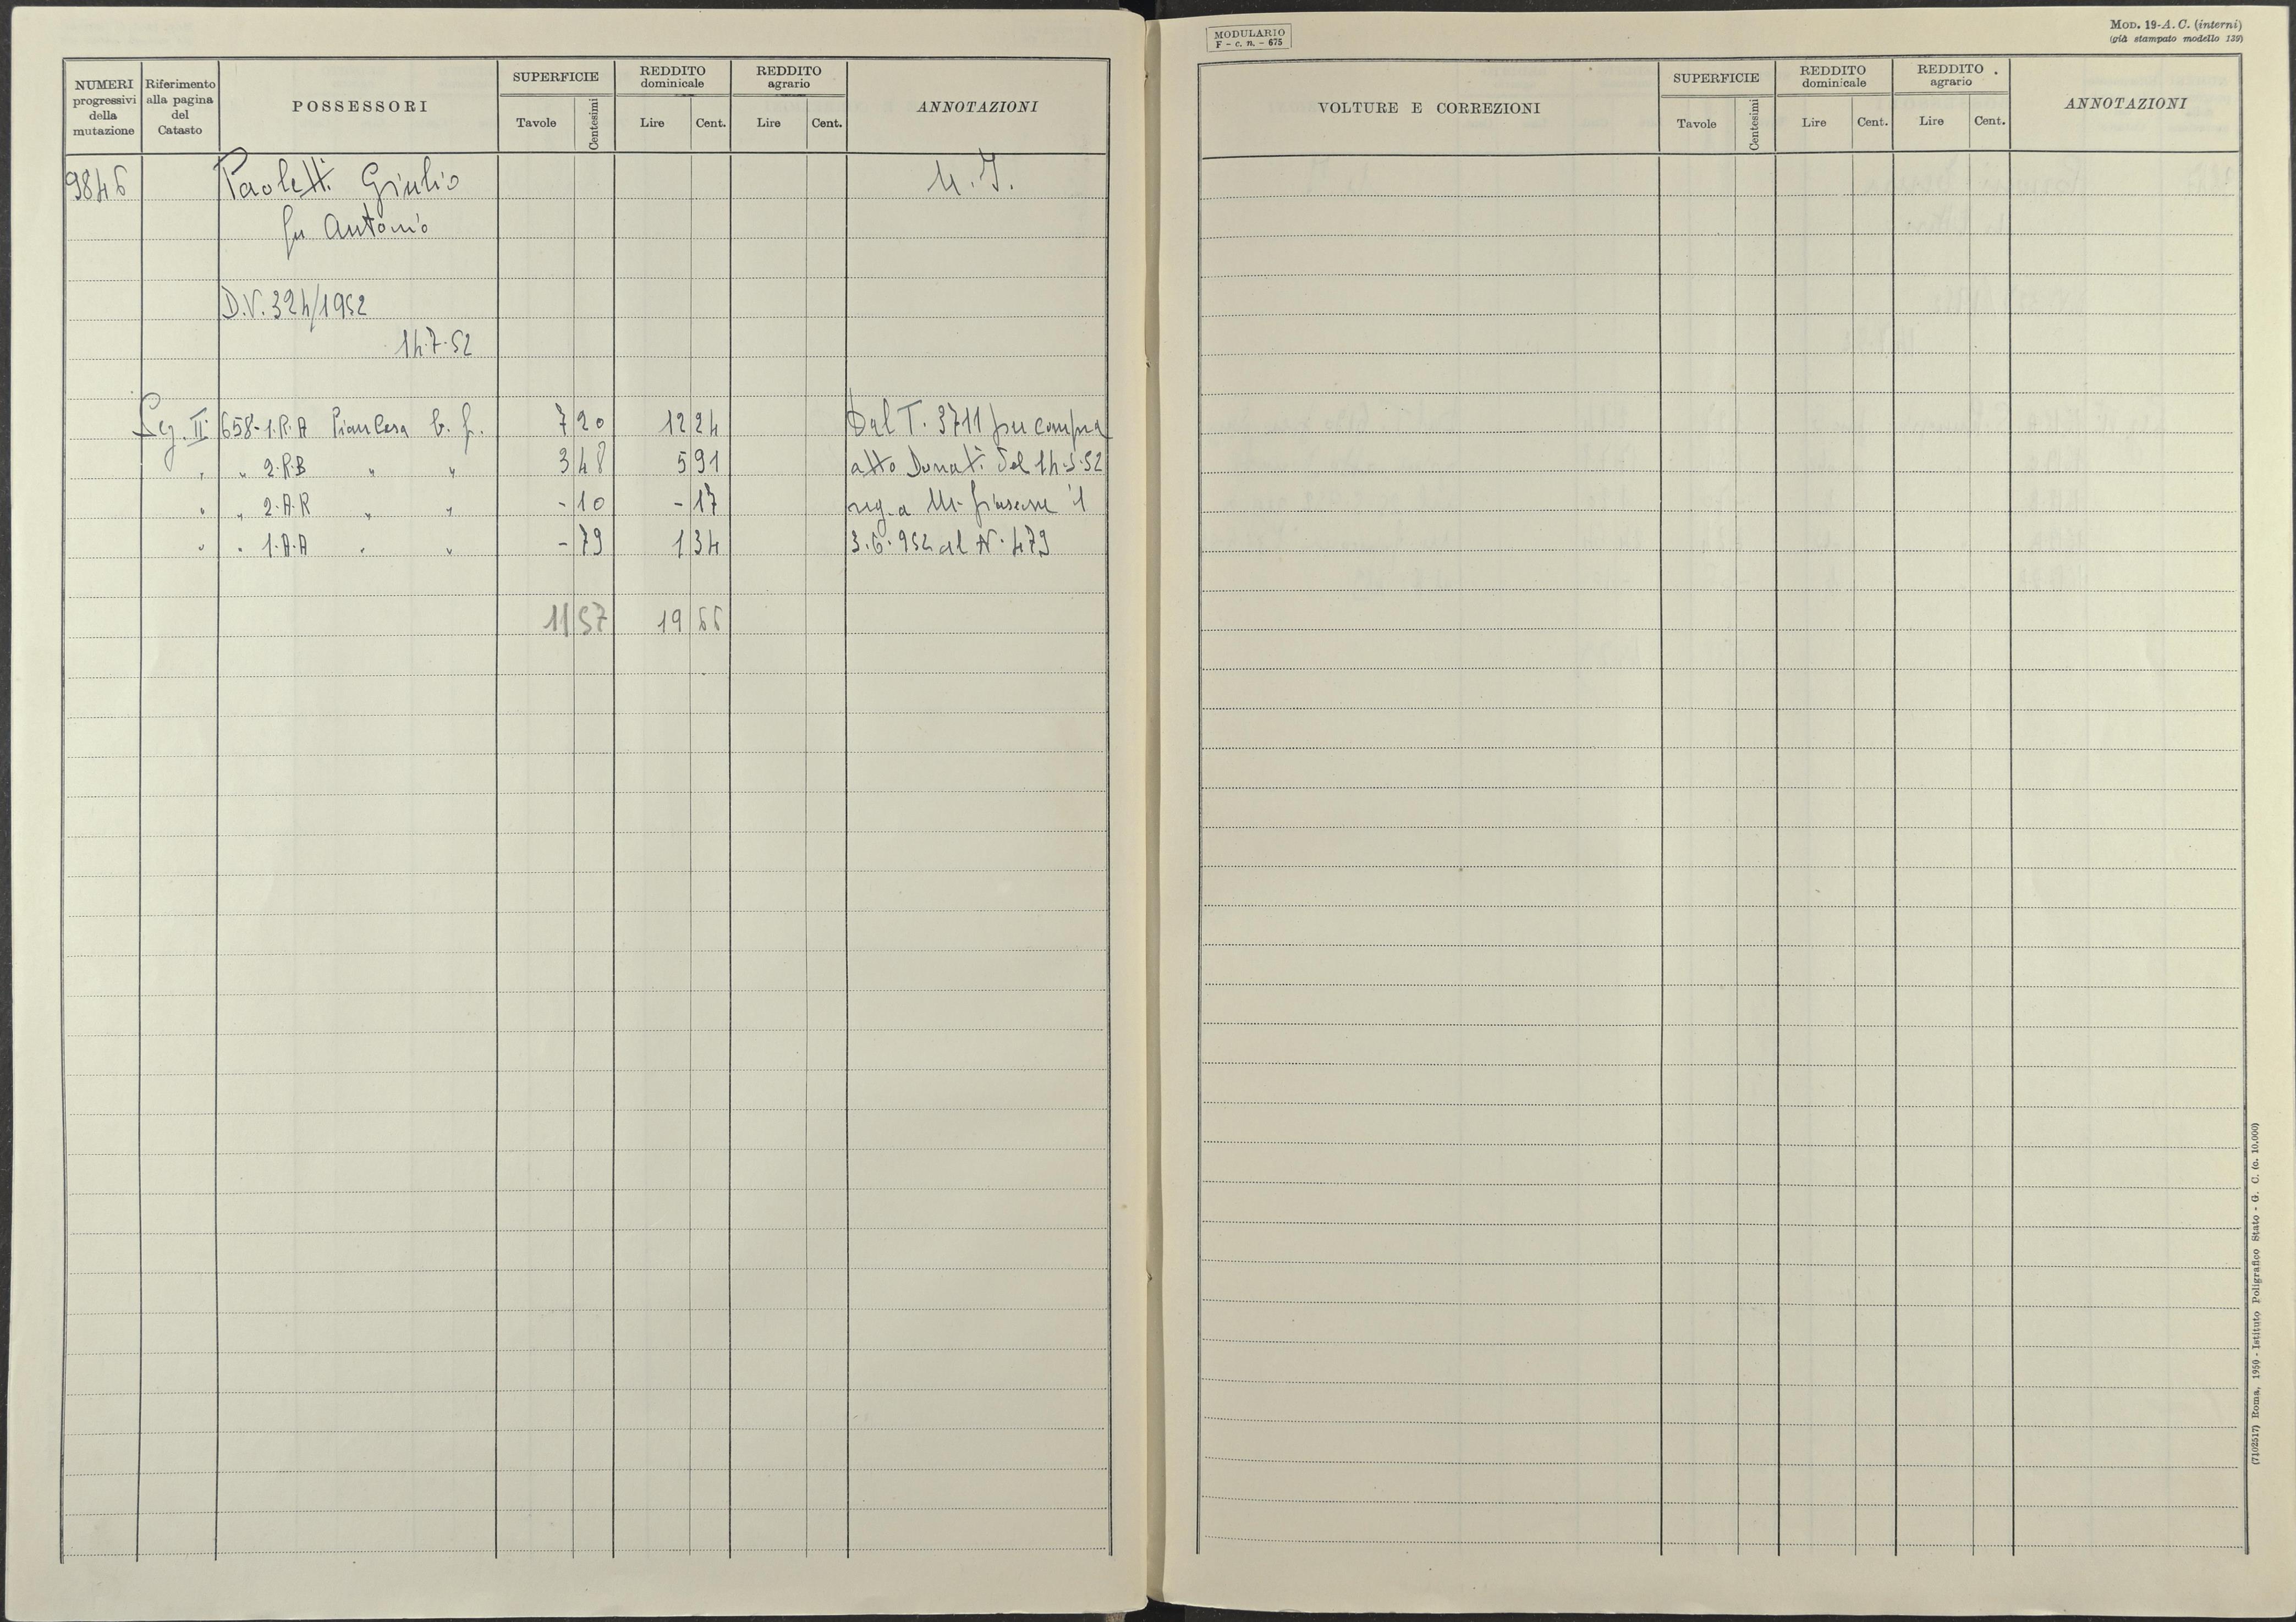 NUMERI progressivi della mutazione
Riferimento alla pagina del Catasto
POSSESSORI
SUPERFICIE
Tavole Centesimi
REDDITO dominicale
Lire Cent.
REDDITO agrario
Lire Cent.
ANNOTAZIONI
9846 Paoletti Giulio
fu Antonio
D.V. 324/1952
14.7.52
Seg. II 658-1.R.A b. f. 7 20 12 24 Dal T. 3711 per compra
" " 2.R.B " " 3 48 5 91 atto Donati del 14.5.52
" " 2.A.R " " - 10 - 17 reg. a il
" " 1.A.A " " - 79 1 34 3.6.952 al N. 479
11 57 19 66
MODULARIO
F - c. n. - 675
MOD. 19-A. C. (interni)
(già stampato modello 139)
VOLTURE E CORREZIONI
SUPERFICIE
Tavole Centesimi
REDDITO dominicale
Lire Cent.
REDDITO agrario
Lire Cent.
ANNOTAZIONI
(7102517) Roma, 1950 - Istituto Poligrafico Stato - G. C. (c. 10.000)